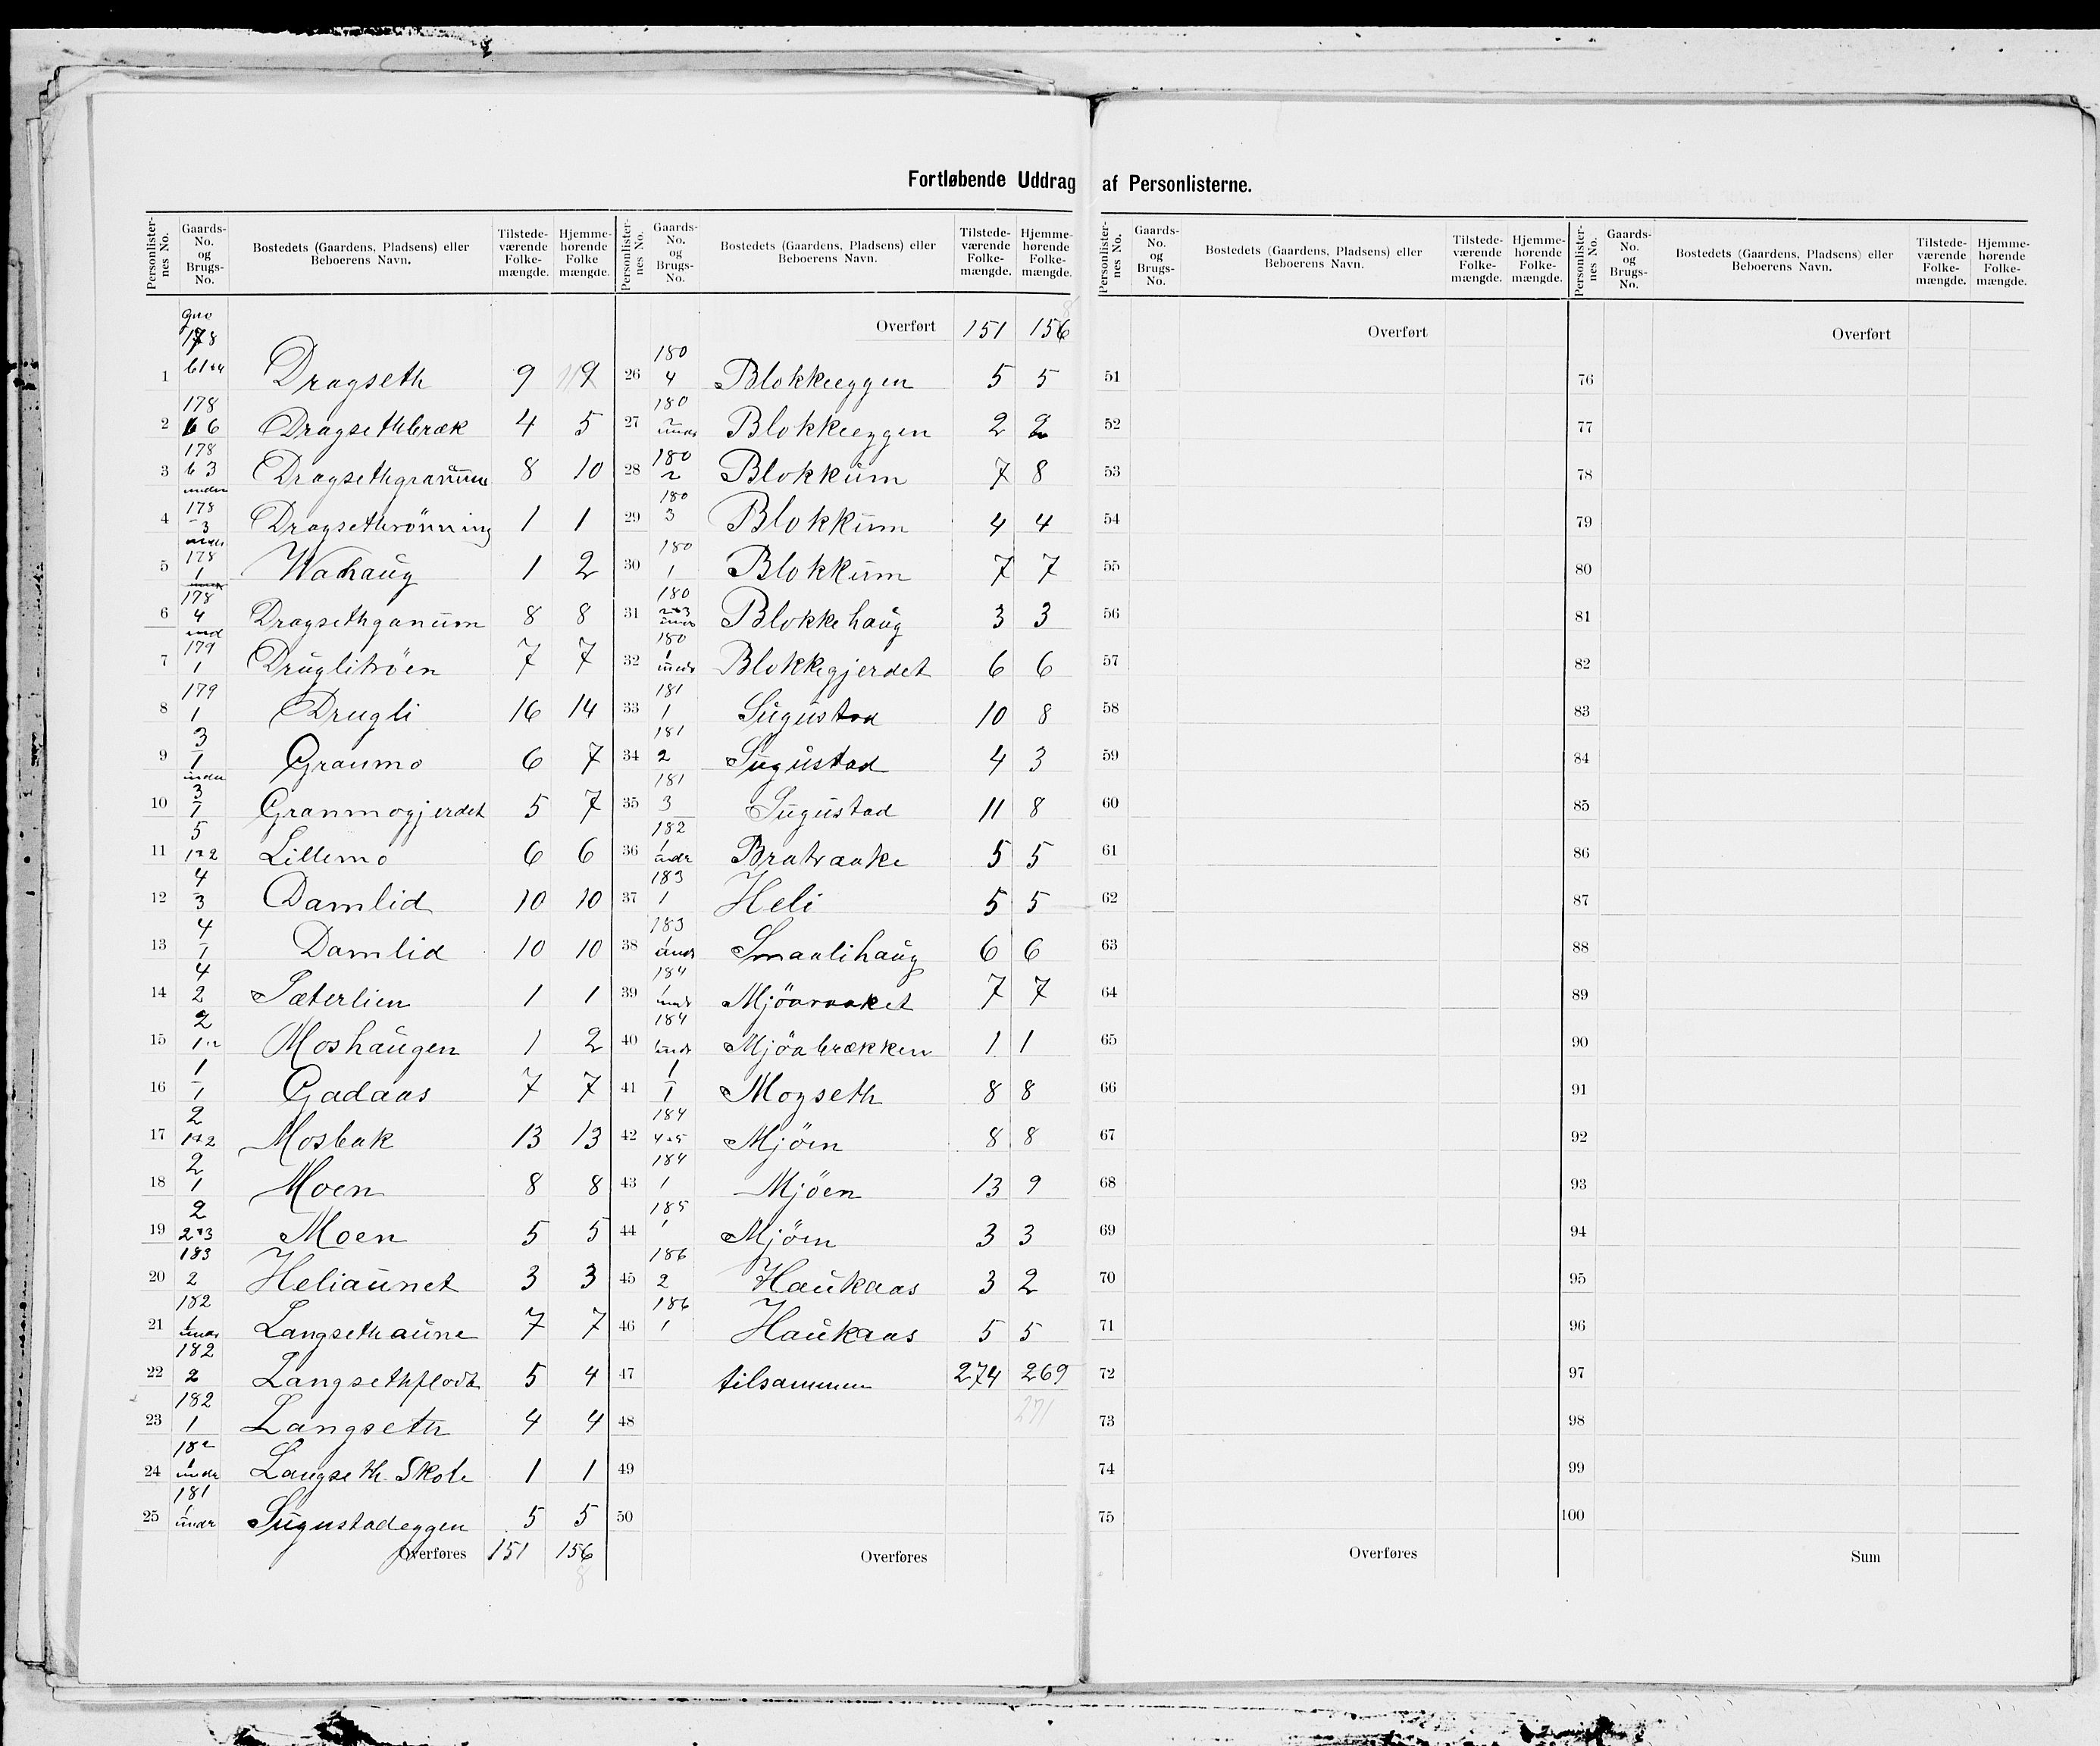 Fortløbende Uddrag af Personlisterne.
Personlister-nes No. | Gaards-No. og Brugs-No. | Bostedets (Gaardens, Pladsens) eller Beboerens Navn. | Tilstede-værende Folke-mængde. | Hjemme-hørende Folke mængde.
gno 178
1 | b 1+4 | Dragseth | 9 | 9
2 | 178 b 6 | Dragsethbræk | 4 | 5
3 | 178 b 3 under | | 8 | 10
4 | 178 3 under | Dragsethrönning | 1 | 1
5 | 178 1 | Wahaug | 1 | 2
6 | 178 4 und | Dragsethganum | 8 | 8
7 | 179 1 | Druglitröen | 7 | 7
8 | 179 1 | Drugli | 16 | 14
9 | 3 1 under | Granmo | 6 | 7
10 | 3 1 | Granmogjerdet | 5 | 7
11 | 5 1+2 | Lillemo | 6 | 6
12 | 4 3 | Damlid | 10 | 10
13 | 4 1 | Damlid | 10 | 10
14 | 4 2 | Sæterlien | 1 | 1
15 | 2 1+2 | Moshaugen | 1 | 2
16 | 1 1 | Gadaas | 7 | 7
17 | 2 1+2 | Mosbak | 13 | 13
18 | 2 1 | Moen | 8 | 8
19 | 2 2+3 | Moen | 5 | 5
20 | 183 2 | Heliaunet | 3 | 3
21 | 182 1 under | Langsethaune | 7 | 7
22 | 182 2 | | 5 | 4
23 | 182 1 | Langseth | 4 | 4
24 | 182 1 under | Langseth Skole | 1 | 1
25 | 181 1 under | Sugustadeggen | 5 | 5
Overføres | 151 | 156
8
Personlister-nes No. | Gaards-No. og Brugs-No. | Bostedets (Gaardens, Pladsens) eller Beboerens Navn. | Tilstede-værende Folke-mængde. | Hjemme-hørende Folke-mængde.
Overført | 151 | 156
26 | 180 4 | Blokkeeggen | 5 | 5
27 | 180 under | Blokkeeggen | 2 | 2
28 | 180 2 | Blokkum | 7 | 8
29 | 180 3 | Blokkum | 4 | 4
30 | 180 1 | Blokkum | 7 | 7
31 | 180 2+3 under | Blokkehaug | 3 | 3
32 | 180 1 under | Blokkegjerdet | 6 | 6
33 | 181 1 | Sugustad | 10 | 8
34 | 181 2 | Sugustad | 4 | 3
35 | 181 3 | Sugustad | 11 | 8
36 | 182 1 under | Bratvaake | 5 | 5
37 | 183 1 | Heli | 5 | 5
38 | 183 1 under | Smaalihaug | 6 | 6
39 | 184 1 under | | 7 | 7
40 | 184 1 under | Mjöabrækken | 1 | 1
41 | 1 1 | Mogseth | 8 | 8
42 | 184 4+5 | Mjöen | 8 | 8
43 | 184 1 | Mjöen | 13 | 9
44 | 185 1 | Mjöen | 3 | 3
45 | 186 2 | Haukaas | 3 | 2
46 | 186 1 | Haukaas | 5 | 5
47 | tilsammen | 274 | 269
48 | 271
49
50
Overføres
Personlister-nes No. | Gaards-No. og Brugs-No. | Bostedets (Gaardens, Pladsens) eller Beboerens Navn. | Tilstede-værende Folke-mængde. | Hjemme-hørende Folke-mængde.
Overført
51
52
53
54
55
56
57
58
59
60
61
62
63
64
65
66
67
68
69
70
71
72
73
74
75
Overføres
Personlister-nes No. | Gaards-No. og Brugs-No. | Bostedets (Gaardens, Pladsens) eller Beboerens Navn. | Tilstede-værende Folke-mængde. | Hjemme-hørende Folke-mængde.
Overført
76
77
78
79
80
81
82
83
84
85
86
87
88
89
90
91
92
93
94
95
96
97
98
99
100
Sum